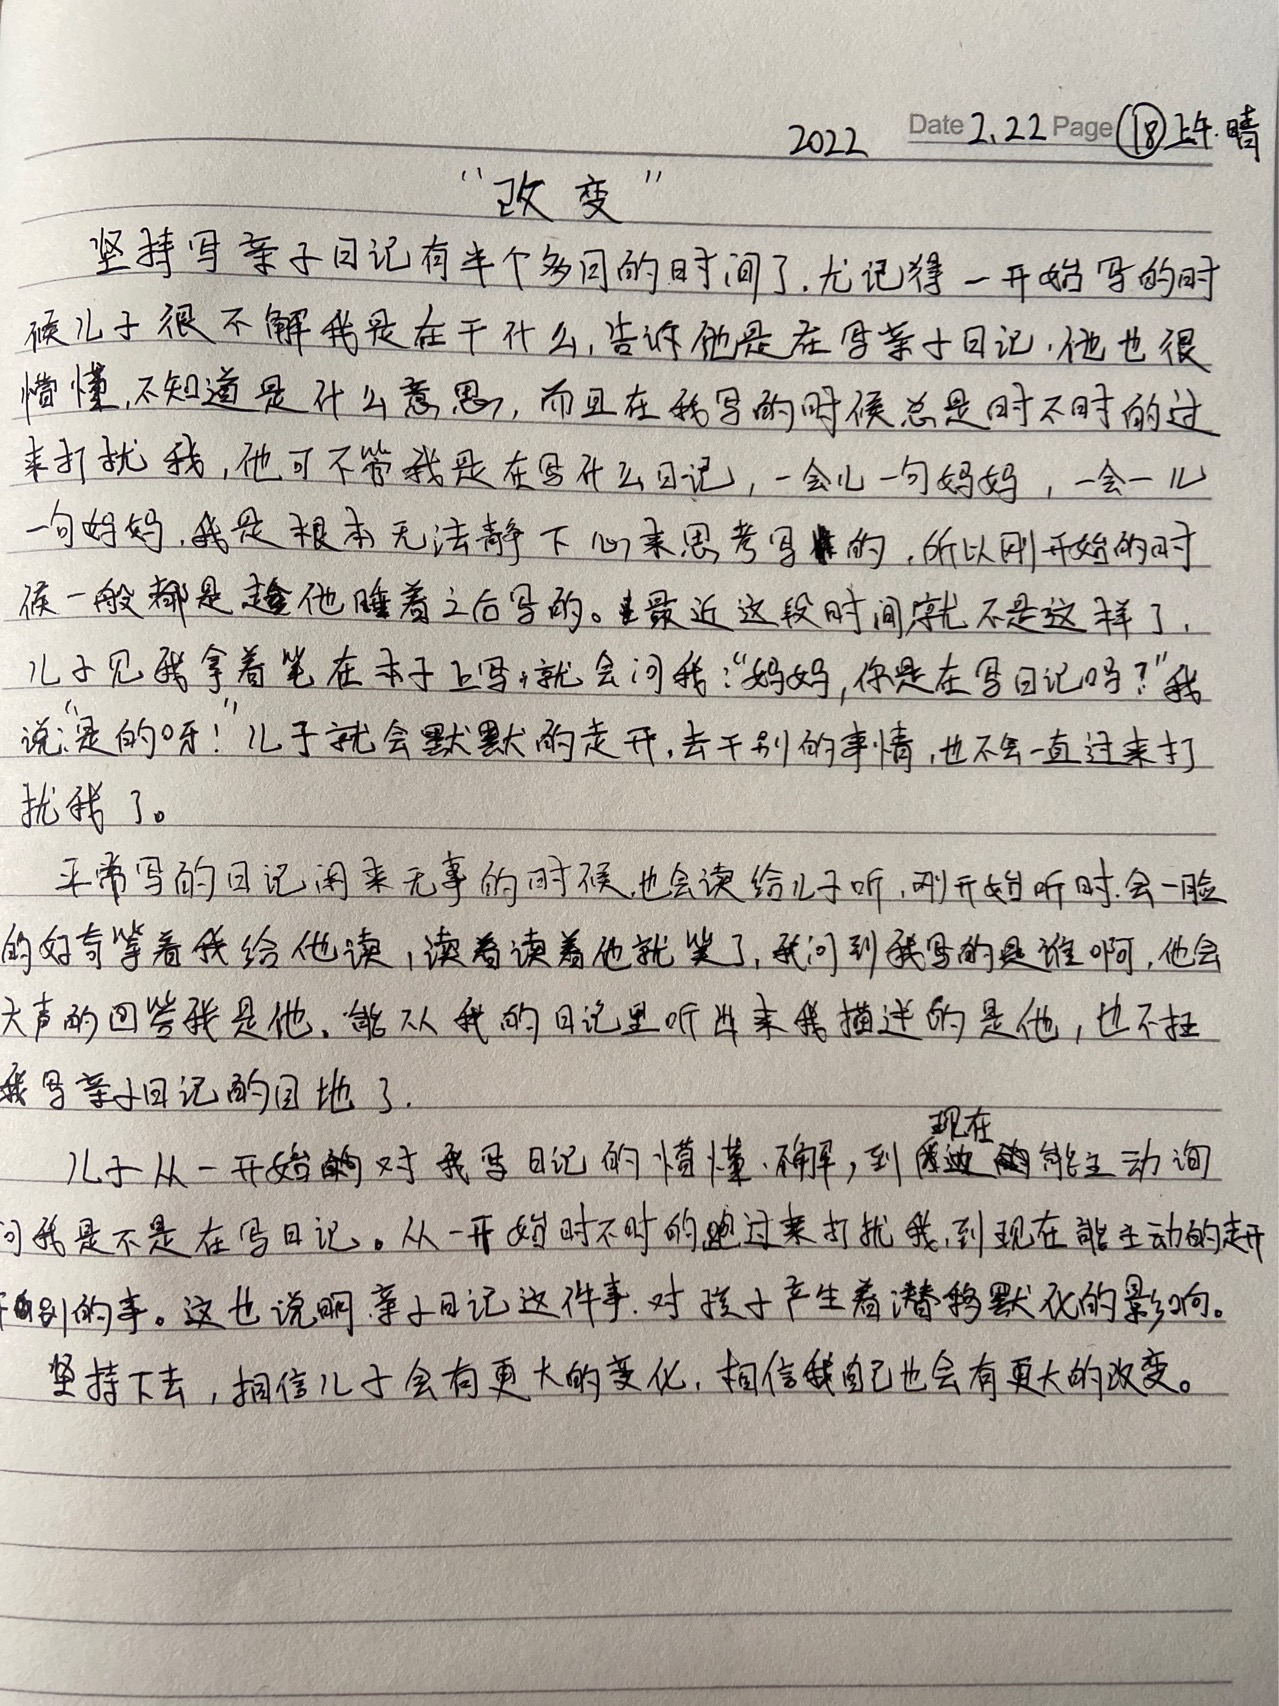 2022 Date 2.22 Page ⑱ 上午.晴
"改变"
坚持写亲子日记有半个多月的时间了.尤记得一开始写的时
候儿子很不解我是在干什么,告诉他是在写亲子日记.他也很
懵懂,不知道是什么意思,而且在我写的时候总是时不时的过
来打扰我,他可不管我是在写什么日记,一会儿一句妈妈,一会一儿
一句妈妈.我是根本无法静下心来思考写的.所以刚开始的时
候一般都是趁他睡着之后写的。最近这段时间就不是这样了.
儿子见我拿着笔在本子上写,就会问我:"妈妈,你是在写日记吗?"我
说:"是的呀!"儿子就会默默的走开.去干别的事情,也不会一直过来打
扰我了。
平常写的日记闲来无事的时候.也会读给儿子听.刚开始听时.会一脸
的好奇等着我给他读,读着读着他就笑了,我问到我写的是谁啊,他会
大声的回答我是他.能从我的日记里听出来我描述的是他,也不枉
我写亲子日记的目地了.
儿子从一开始的对我写日记的懵懂.不解,到现在能主动询
问我是不是在写日记。从一开始时不时的跑过来打扰我,到现在能主动的走开
干别的事。这也说明亲子日记这件事.对孩子产生着潜移默化的影响。
坚持下去,相信儿子会有更大的变化.相信我自己也会有更大的改变。